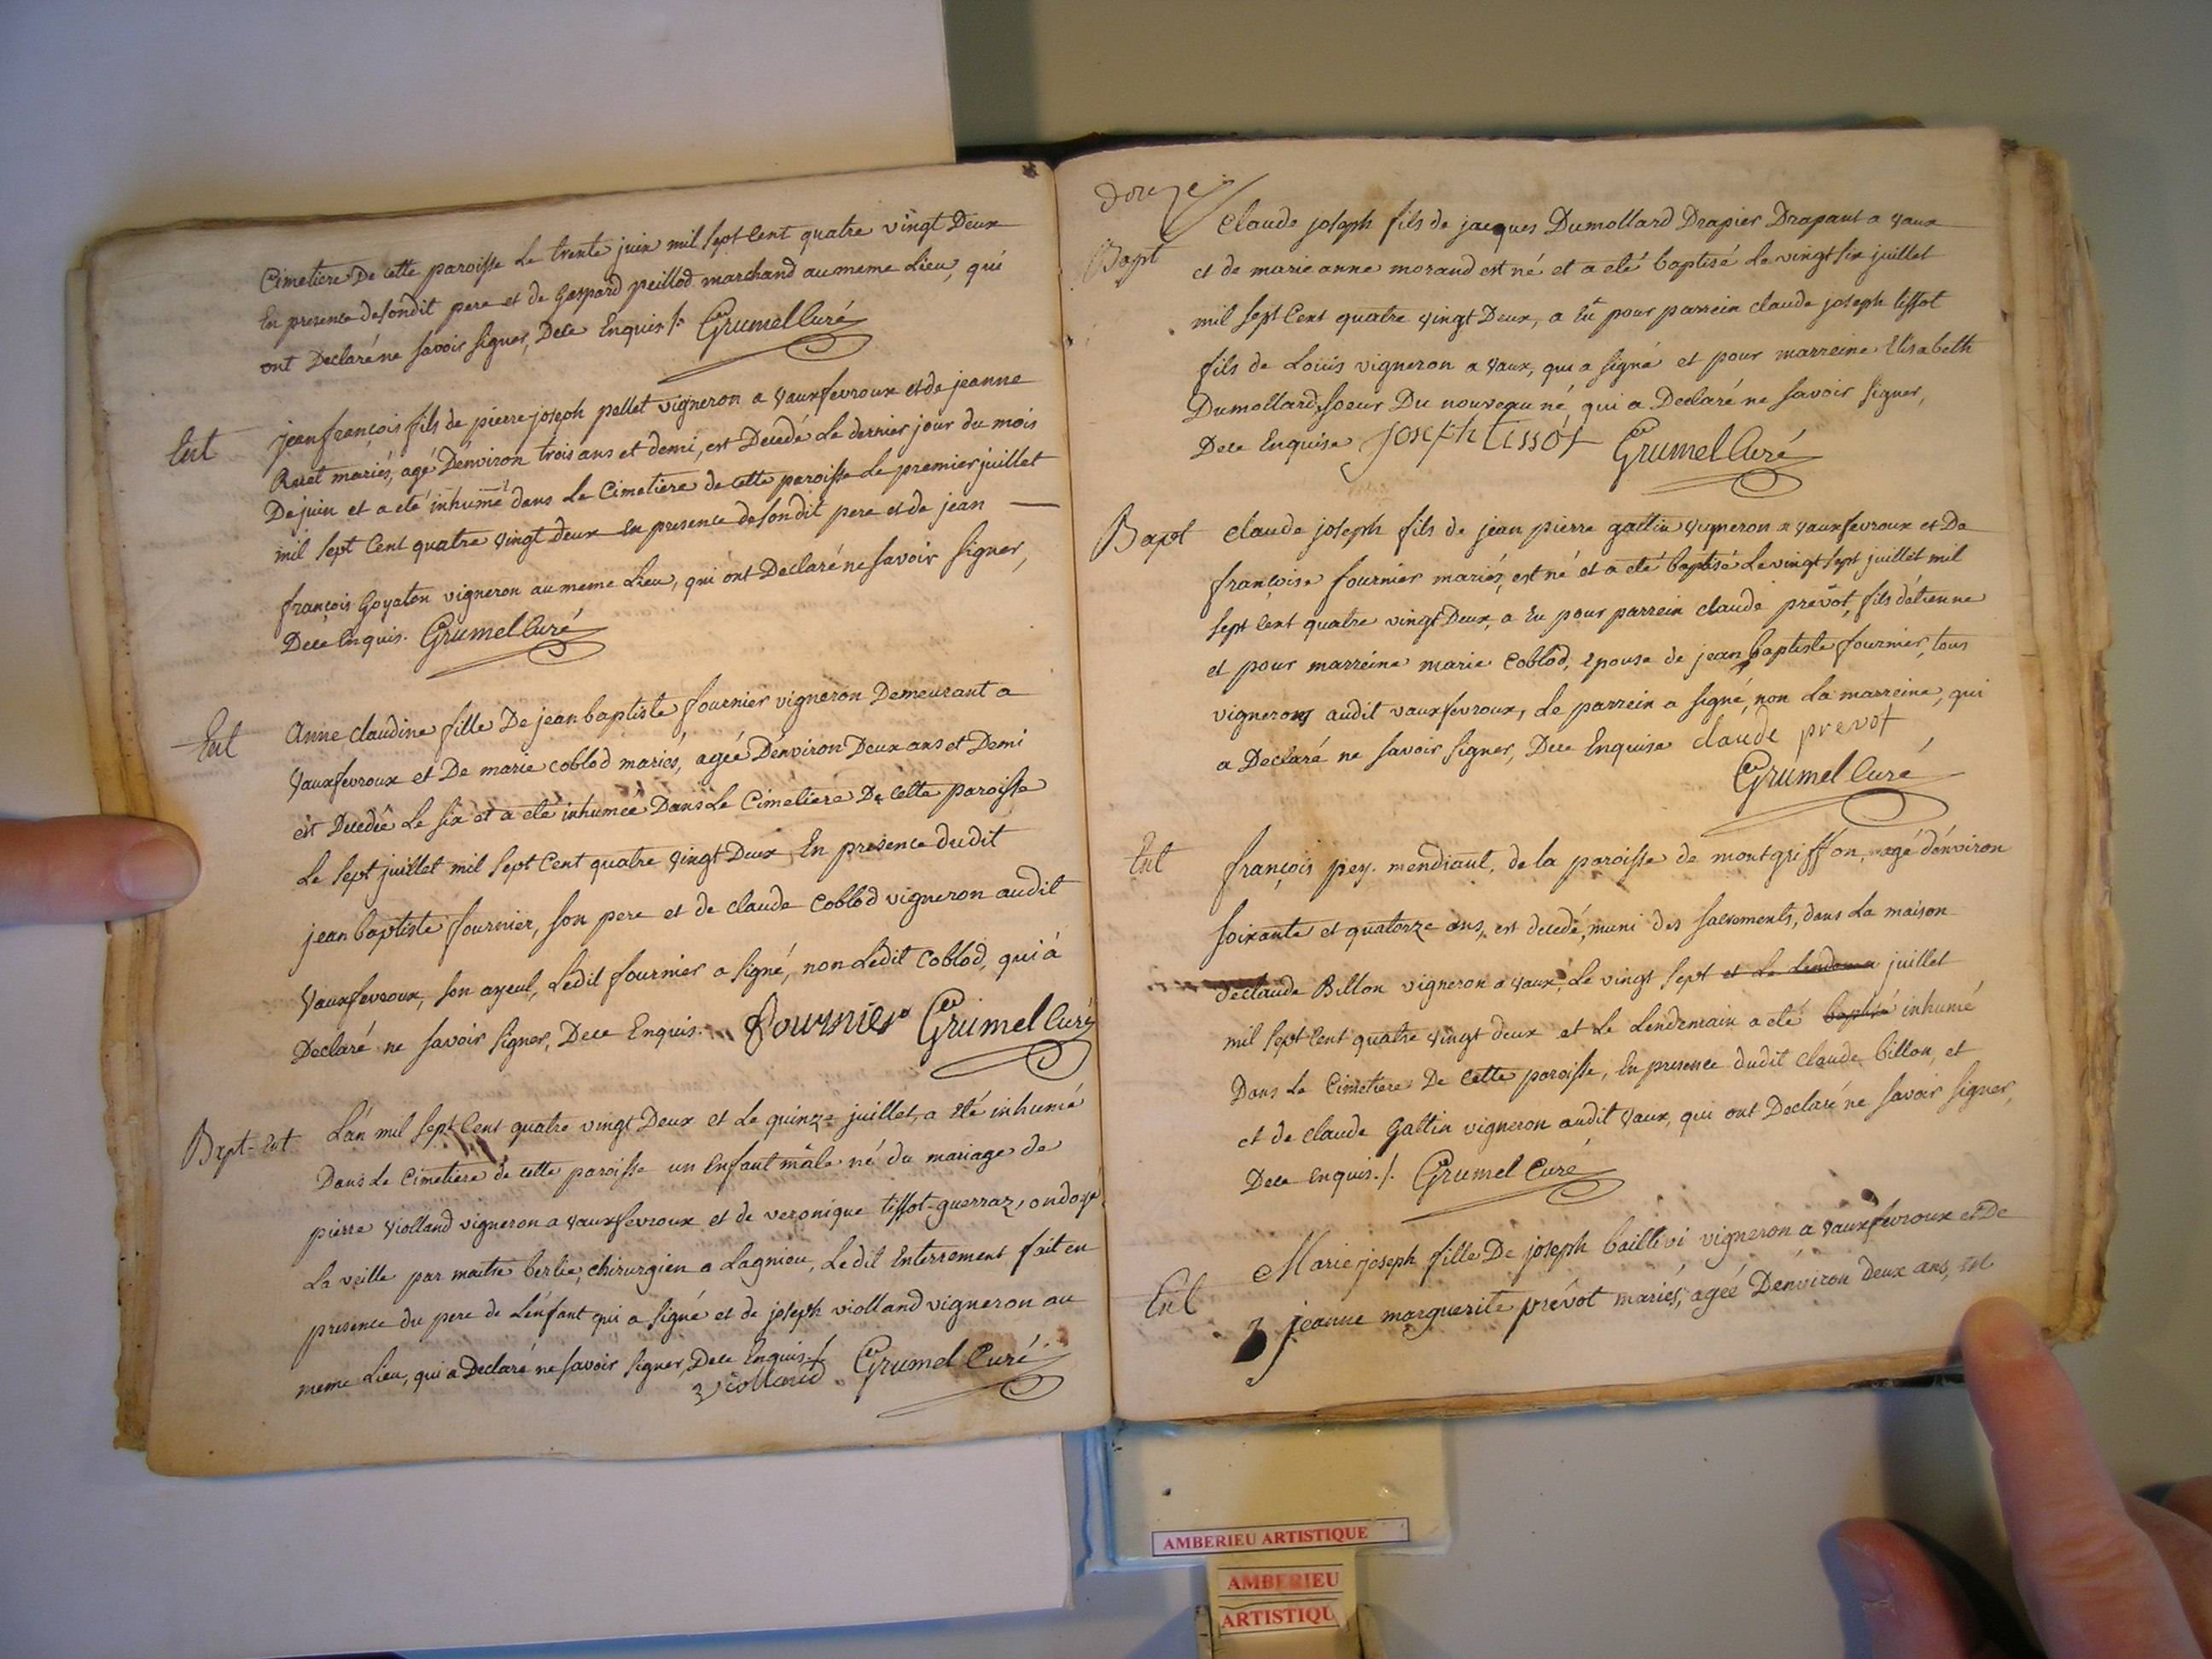 Cimetiere De cette paroisse Le trente juin mil sept Cent quatre vingt Deux
En presence desondit pere et de Gaspard peillod marchand au meme Lieu, qui
ont Declaré ne savoir signer, Dece Enquis /. Grumel Curé
Ent
jean françois fils de pierre joseph pellet vigneron a vauxfevroux et de jeanne
Ruet mariés, agé D'environ trois ans et demi, est Decedé Le dernier jour du mois
De juin et a eté inhumé dans Le Cimetiere de cette paroisse Le premier juillet
mil sept Cent quatre vingt deux En presence desondit pere et de jean
françois Goyaton vigneron au meme Lieu, qui ont Declaré ne savoir signer,
Dece Enquis. Grumel Curé
Ent
Anne claudine fille De jean baptiste fournier vigneron Demeurant a
vauxfevroux et De marie coblod mariés, agée D'environ Deux ans et Demi
est Decedée Le six et a eté inhumée Dans Le Cimetiere De Cette paroisse
Le sept juillet mil sept Cent quatre vingt Deux, En presence dudit
jean baptiste fournier, son pere et de claude Coblod vigneron audit
vauxfevroux, son ayeul, Ledit fournier a signé, non Ledit Coblod, qui à
Declaré ne savoir signer, Dece Enquis. fournier Grumel Curé
Bapt-Ent
L'an mil sept Cent quatre vingt Deux et Le quinze juillet, a eté inhumé
Dans Le Cimetiere de cette paroisse un Enfant mâle né du mariage de
pierre violland vigneron a vauxfevroux et de veronique tissot-guerraz, ondoyé
La veille par maitre berlie, chirurgien a Lagnieu, Ledit Enterrement fait en
presence du pere de L'enfant qui a signé et de joseph violland vigneron au
meme Lieu, qui a Declaré ne savoir signer, Dece Enquis /. Grumel Curé
violland
douze
Bapt
Claude joseph fils de jacques Dumollard Drapier Drapant a vaux
et de marie anne morand est né et a eté baptisé Le vingt six juillet
mil sept Cent quatre vingt Deux, a Eu pour parrein claude joseph tissot
fils de Loüis vigneron a vaux, qui a signé et pour marreine Elisabeth
Dumollard, soeur Du nouveau né, qui a Declaré ne savoir signer,
Dece Enquise joseph tissot Grumel Curé
Bapt
claude joseph fils de jean pierre gattin vigneron a vauxfevroux et De
françoise fournier mariés, est né et a eté baptisé Le vingt sept juillet mil
sept Cent quatre vingt Deux, a Eu pour parrein claude prevôt, fils d'etienne
et pour marreine marie Coblod, epouse de jean baptiste fournier, tous
vignerons audit vauxfevroux, Le parrein a signé, non La marreine, qui
a Declaré ne savoir signer, Dece Enquise claude prevot
Grumel Curé
Ent
françois pey. mendiant, de la paroisse de montgriffon, agé d'environ
soixante et quatorze ans, est decedé, muni des sacrements, dans La maison
de claude Billon vigneron a vaux, Le vingt sept et Le Lendema juillet
mil sept Cent quatre vingt deux et Le Lendemain a eté baptisé inhumé
Dans Le Cimetiere De Cette paroisse, En presence dudit claude billon, et
et de claude Gattin vigneron audit vaux, qui ont Declaré ne savoir signer,
Dece Enquis. /. Grumel Curé
Ent
Marie joseph fille De joseph baillivi vigneron a vauxfevroux et De
jeanne marguerite prévôt mariés, agée D'environ deux ans, est
AMBERIEU ARTISTIQUE
AMBERIEU
ARTISTIQU